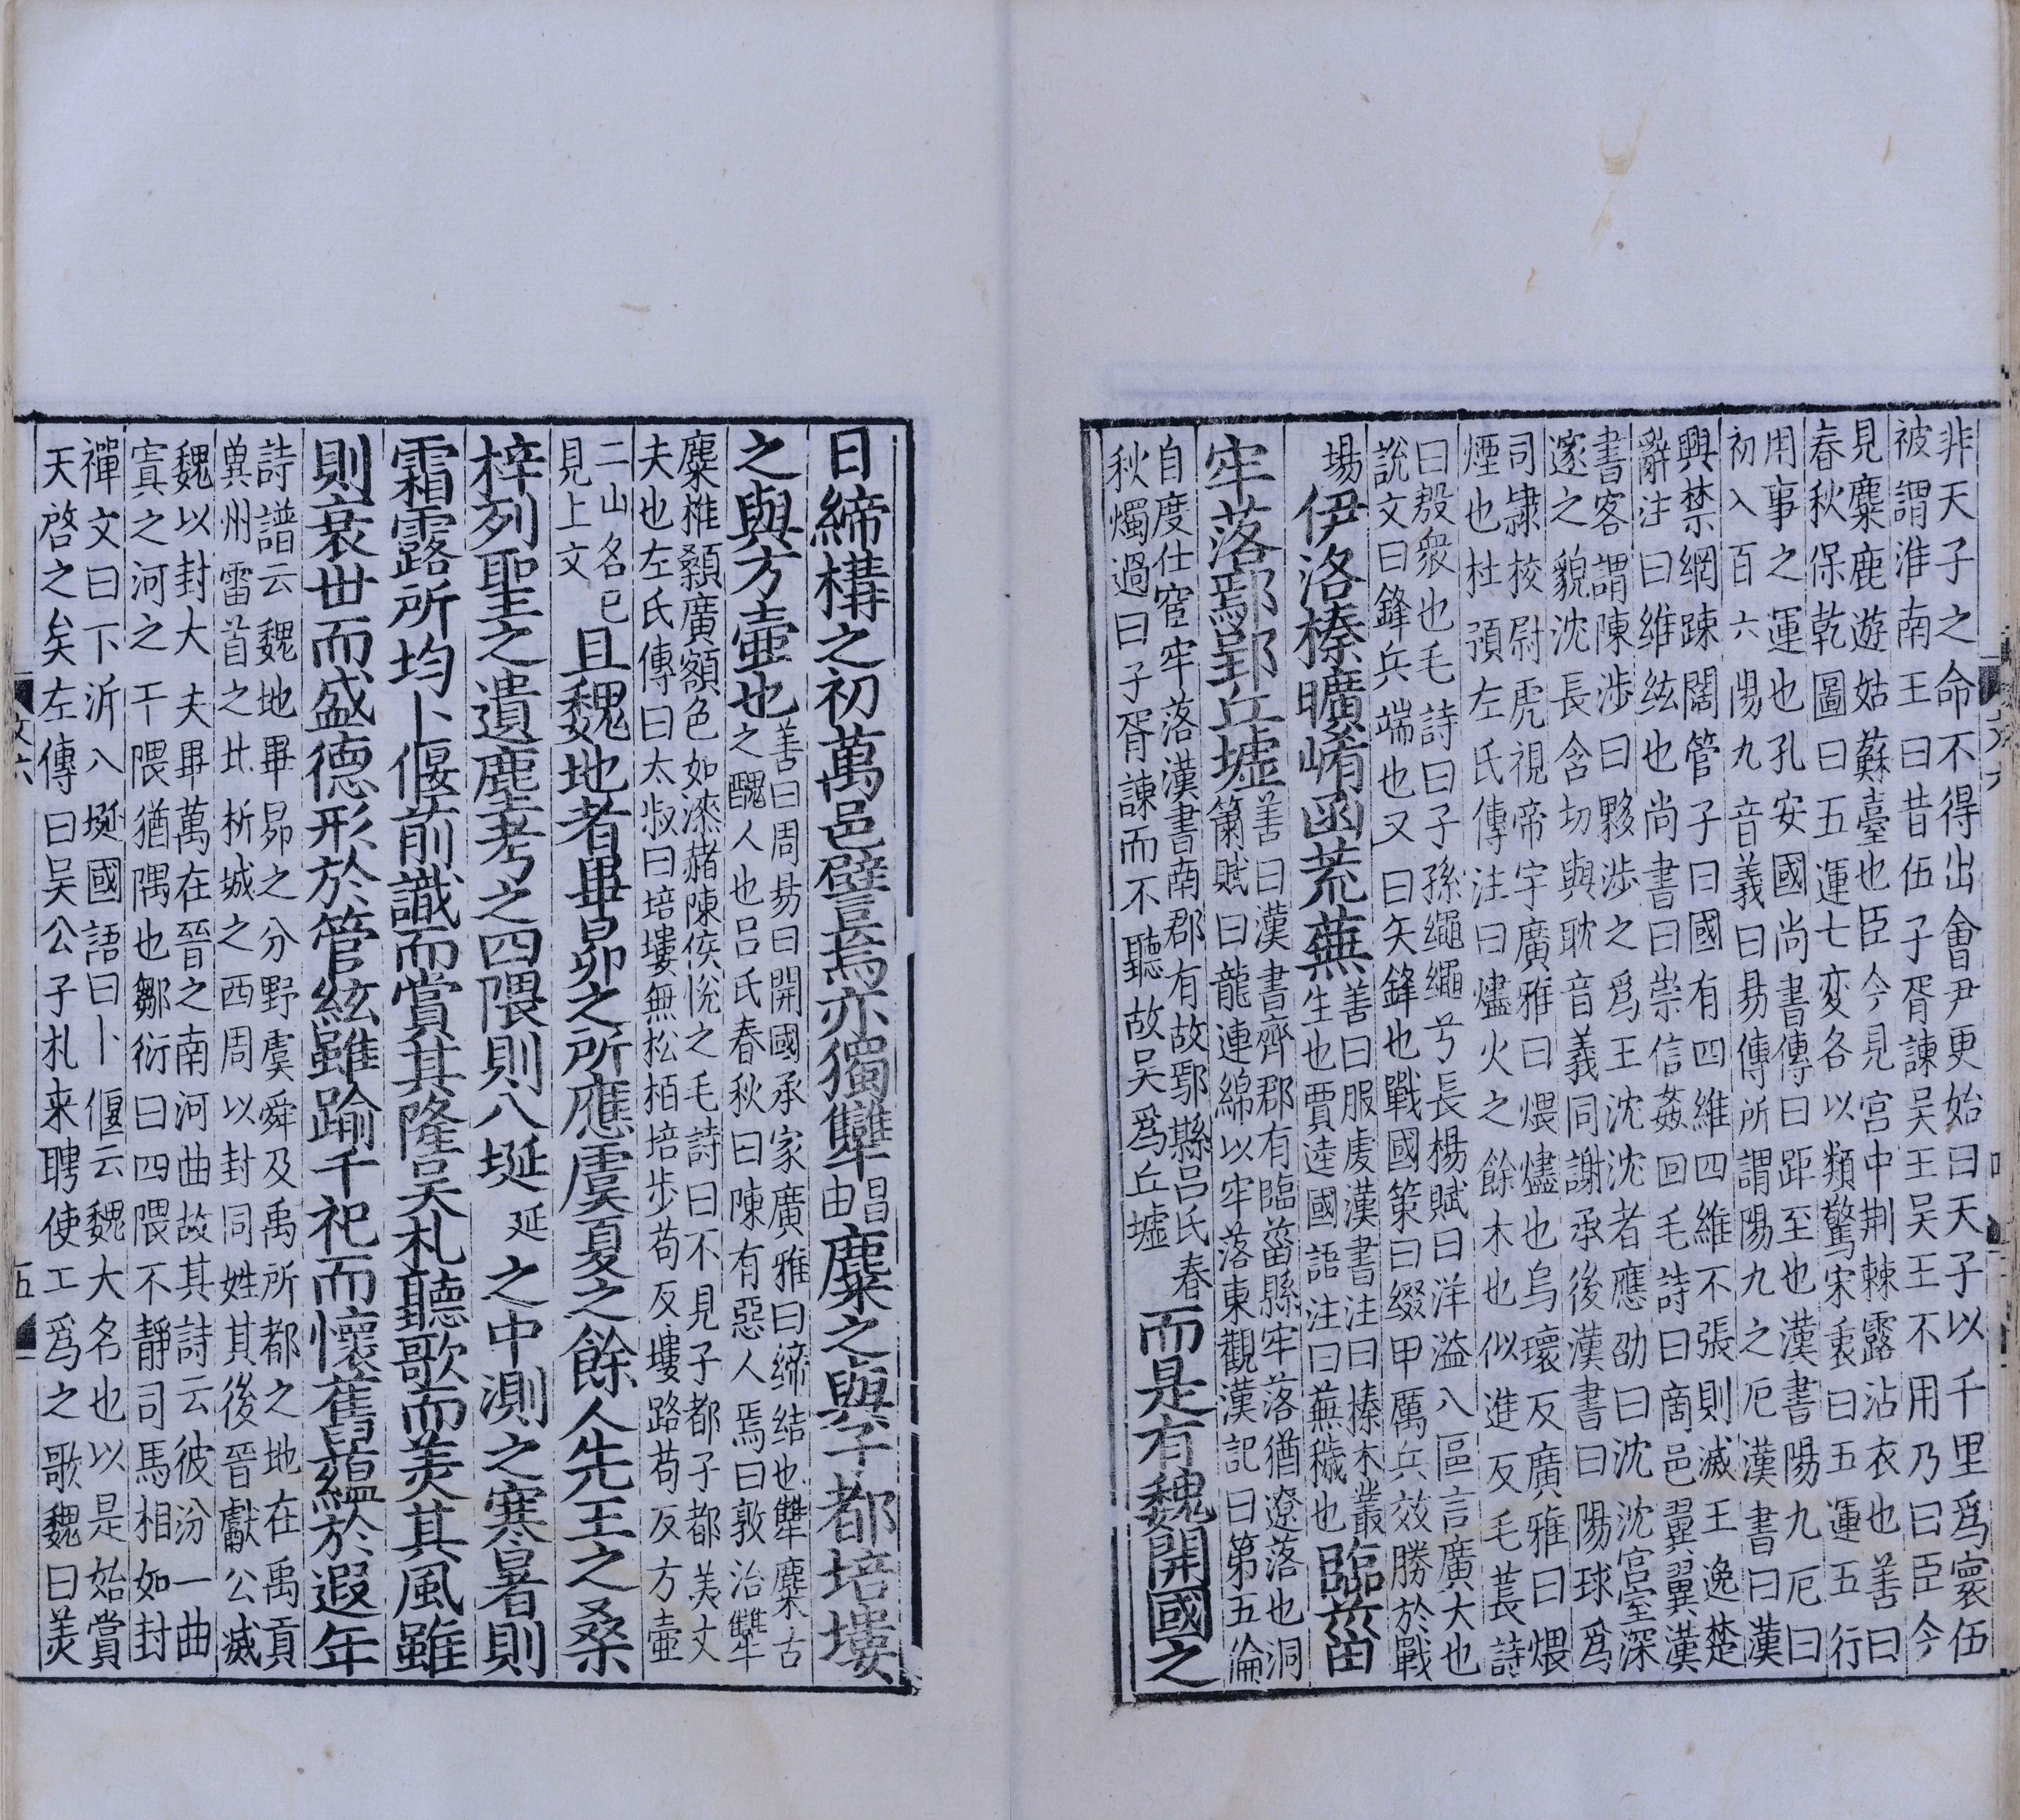 非天子之命不得出會尹更始曰天子以千里爲寰伍
被謂淮南王曰昔伍子胥諫吴王吴王不用乃曰臣今
見麋鹿遊姑蘇臺也臣今見宫中荆棘露沾衣也善曰
春秋保乾圖曰五運七变各以類驚宋衷曰五運五行
用事之運也孔安國尚書傳曰距至也漢書陽九厄曰
初入百六陽九音義曰易傳所謂陽九之厄漢書曰漢
興禁網踈闊管子曰國有四維四維不張則滅王逸楚
辭注曰維紘也尚書曰崇信姦回毛詩曰啇邑翼翼漢
書客謂陳涉曰夥涉之爲王沈沈者應劭曰沈沈宫室深
邃之貌沈長含切與耽音義同謝承後漢書曰陽球爲
司隷校尉虎視帝宇廣雅曰煨燼也烏瓌反廣雅曰煨
煙也杜預左氏傳注曰燼火之餘木也似進反毛萇詩
曰殷衆也毛詩曰子孫繩繩兮長楊賦曰洋溢八區言廣大也
說文曰鋒兵端也又曰矢鋒也戰國策曰缀甲厲兵效勝於戰
場伊洛榛曠崤函荒蕪善曰服虔漢書注曰榛木叢生也賈逵國語注曰蕪穢也臨菑
牢落鄢郢丘墟善曰漢書齊郡有臨菑縣牢落猶遼落也洞簫賦曰龍連綿以牢落東觀漢記曰第五倫
自度仕宦牢落漢書南郡有故鄢縣吕氏春秋燭過曰子胥諫而不聽故吴爲丘墟而是有魏開國之
日締構之初萬邑譬焉亦獨犫昌由麋之與子都培塿
之與方壺也善曰周易曰開國承家廣雅曰締结也犫麋古之醜人也吕氏春秋曰陳有惡人焉曰敦洽犫
麋椎顙廣額色如漆赭陳侯悅之毛詩曰不見子都子都美丈
夫也左氏傳曰太叔曰培塿無松栢培步苟反塿路苟反方壺
二山名已見上文且魏地者畢昴之所應虞夏之餘人先王之桑
梓列聖之遺塵考之四隈則八埏延之中測之寒暑則
霜露所均卜偃前識而賞其隆吴札聽歌而美其風雖
則衰世而盛德形於管絃雖踰千祀而懷舊蘊於遐年
詩譜云魏地畢昴之分野虞舜及禹所都之地在禹貢
冀州雷首之北析城之西周以封同姓其後晉獻公滅
魏以封大夫畢萬在晉之南河曲故其詩云彼汾一曲
寘之河之干隈猶隅也鄒衍曰四隈不靜司馬相如封
禪文曰下泝八埏國語曰卜偃云魏大名也以是始賞
天啓之矣左傳曰吴公子札来聘使工爲之歌魏曰美
文六
五